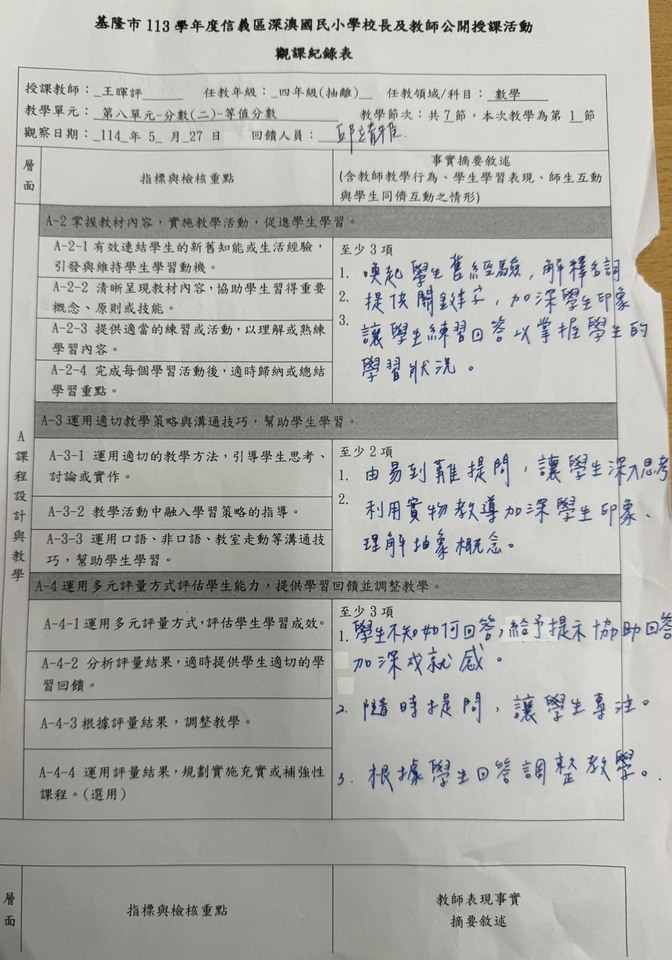 基隆市 113 學年度信義區深澳國民小學校長及教師公開授課活動
觀課紀錄表
授課教師：_王暉評 任教年級：_四年級(抽離)_ 任教領域/科目：_數學
教學單元：_第八單元-分數(二)-等值分數 教學節次：共_7_節，本次教學為第_1_節
觀察日期：_114_年 5_ 月_27 日 回饋人員：
層面
指標與檢核重點
事實摘要敘述
(含教師教學行為、學生學習表現、師生互動
與學生同儕互動之情形)
A 課程設計與教學
A-2 掌握教材內容，實施教學活動，促進學生學習。
A-2-1 有效連結學生的新舊知能或生活經驗，
引發與維持學生學習動機。
A-2-2 清晰呈現教材內容，協助學生習得重要
概念、原則或技能。
A-2-3 提供適當的練習或活動，以理解或熟練
學習內容。
A-2-4 完成每個學習活動後，適時歸納或總結
學習重點。
至少 3 項
1. 喚起學生舊經驗，解釋名詞
2. 提供關鍵字，加深學生印象
3. 讓學生練習回答以掌握學生的
學習狀況。
A-3 運用適切教學策略與溝通技巧，幫助學生學習。
A-3-1 運用適切的教學方法，引導學生思考、
討論或實作。
A-3-2 教學活動中融入學習策略的指導。
A-3-3 運用口語、非口語、教室走動等溝通技
巧，幫助學生學習。
至少 2 項
1. 由易到難提問，讓學生深入思考
2. 利用實物教導加深學生印象、
理解抽象概念。
A-4 運用多元評量方式評估學生能力，提供學習回饋並調整教學。
A-4-1 運用多元評量方式，評估學生學習成效。
A-4-2 分析評量結果，適時提供學生適切的學
習回饋。
A-4-3 根據評量結果，調整教學。
A-4-4 運用評量結果，規劃實施充實或補強性
課程。(選用)
至少 3 項
1. 學生不知如何回答，給予提示協助回答
加深成就感。
2. 隨時提問，讓學生專注。
3. 根據學生回答調整教學。
層面
指標與檢核重點
教師表現事實
摘要敘述